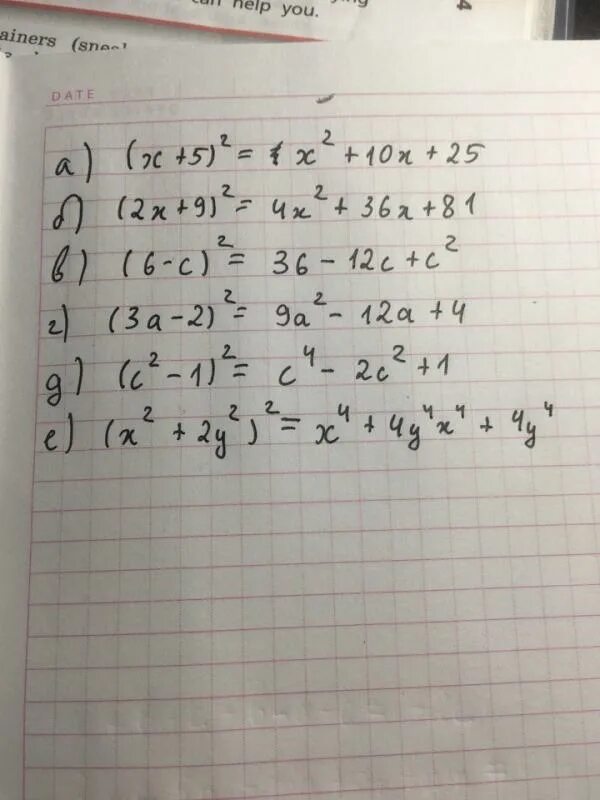 can help you.
4
ainers (snea
DATE
а) (x+5)² = x² + 10x + 25
б) (2x+9)² = 4x² + 36x + 81
в) (6-c)² = 36 - 12c + c²
г) (3a-2)² = 9a² - 12a + 4
д) (c² - 1)² = c⁴ - 2c² + 1
е) (x² + 2y²)² = x⁴ + 4y⁴x⁴ + 4y⁴